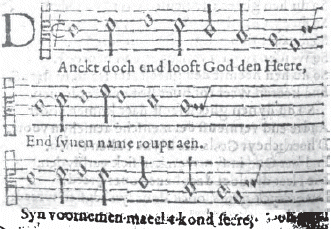 DAnckt doch end looft God den Heere,
End synen name roupt aen.
Syn voornemen maeckt kond seere,